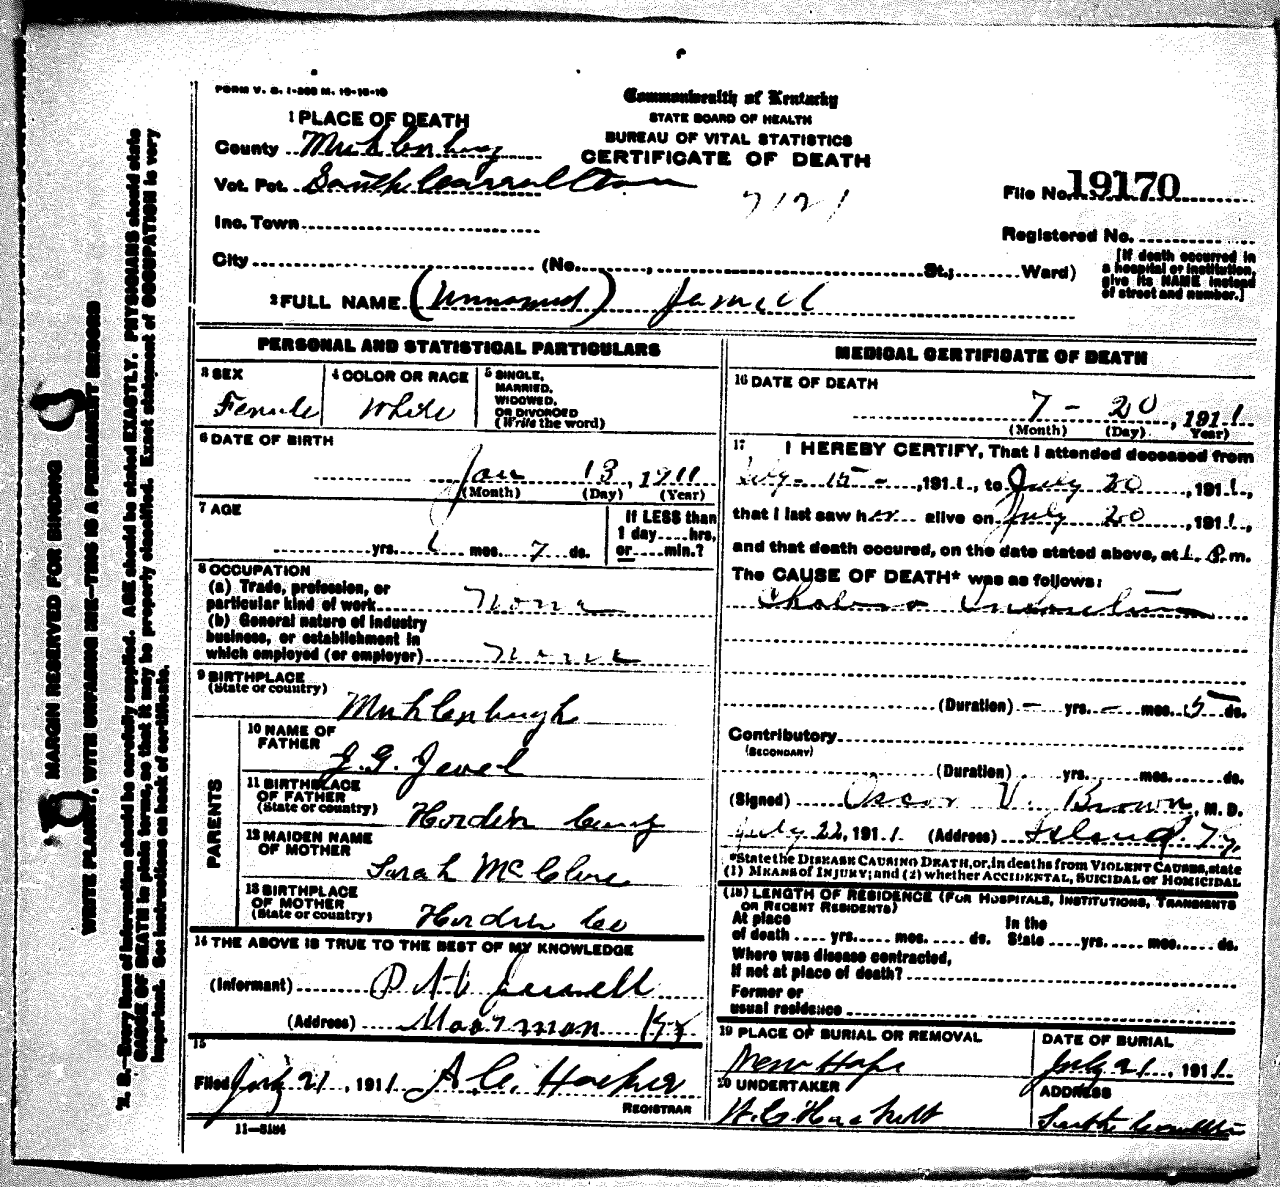 FORM V. S. 1-200 M. 10-10-10
Commonwealth of Kentucky
STATE BOARD OF HEALTH
BUREAU OF VITAL STATISTICS
CERTIFICATE OF DEATH
1 PLACE OF DEATH
County Muhlenburg
Vot. Pct. South Carrollton
7121
File No. 19170
Inc. Town
Registered No.
City (No. , St.; Ward)
[If death occurred in
a hospital or institution,
give its NAME instead
of street and number.]
2 FULL NAME (Unnamed) Jewell
PERSONAL AND STATISTICAL PARTICULARS
3 SEX
Female
4 COLOR OR RACE
White
5 SINGLE,
MARRIED,
WIDOWED,
OR DIVORCED
(Write the word)
6 DATE OF BIRTH
Jan 13, 1911
(Month) (Day) (Year)
7 AGE
If LESS than
1 day....hrs.
or....min.?
yrs. mos. 7 ds.
8 OCCUPATION
(a) Trade, profession, or
particular kind of work None
(b) General nature of industry
business, or establishment in
which employed (or employer) None
9 BIRTHPLACE
(State or country)
Muhlenburgh
PARENTS
10 NAME OF
FATHER
J. G. Jewel
11 BIRTHPLACE
OF FATHER
(State or country) Hardin County
12 MAIDEN NAME
OF MOTHER
Sarah McClure
13 BIRTHPLACE
OF MOTHER
(State or country) Hardin Co
14 THE ABOVE IS TRUE TO THE BEST OF MY KNOWLEDGE
(Informant) Jewell
(Address) Moorman Ky
15
Filed July 21, 1911 A. C. Hocker
REGISTRAR
11-3184
MEDICAL CERTIFICATE OF DEATH
16 DATE OF DEATH
7 - 20, 1911
(Month) (Day) (Year)
17 I HEREBY CERTIFY, That I attended deceased from
July - 15 -, 1911, to July 20, 1911,
that I last saw her alive on July 20, 1911,
and that death occured, on the date stated above, at m.
The CAUSE OF DEATH* was as follows:
Cholera Infantum
(Duration) - yrs. - mos. 5 ds.
Contributory
(SECONDARY)
(Duration) yrs. mos. ds.
(Signed) Oscar V. Brown, M. D.
July 22, 1911 (Address) Island Ky.
*State the DISEASE CAUSING DEATH, or, in deaths from VIOLENT CAUSES, state
(1) MEANS OF INJURY; and (2) whether ACCIDENTAL, SUICIDAL or HOMICIDAL
(18) LENGTH OF RESIDENCE (FOR HOSPITALS, INSTITUTIONS, TRANSIENTS
OR RECENT RESIDENTS)
At place In the
of death yrs. mos. ds. State yrs. mos. ds.
Where was disease contracted,
if not at place of death?
Former or
usual residence
19 PLACE OF BURIAL OR REMOVAL
New Hope
DATE OF BURIAL
July 21, 1911
20 UNDERTAKER
ADDRESS
South Carrollton
MARGIN RESERVED FOR BINDING
WRITE PLAINLY, WITH UNFADING INK—THIS IS A PERMANENT RECORD
N. B.—Every item of information should be carefully supplied. AGE should be stated EXACTLY. PHYSICIANS should state
CAUSE OF DEATH in plain terms, so that it may be properly classified. Exact statement of OCCUPATION is very
important. See instructions on back of certificate.